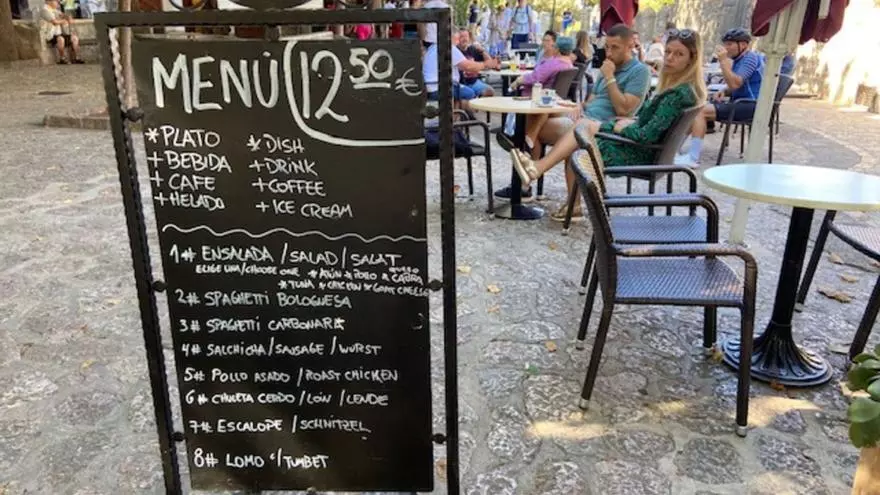 MENÚ 12,50€
*PLATO *DISH
+BEBIDA +DRINK
+CAFE +COFFEE
+HELADO +ICE CREAM
1# ENSALADA / SALAD / SALAT
ELIGE UNA/CHOOSE ONE *ATÚN *POLLO *QUESO CABRA
*TUNA *CHICKEN *GOAT CHEESE
2# SPAGHETTI BOLOGNESA
3# SPAGHETTI CARBONARA
4# SALCHICHA / SAUSAGE / WURST
5# POLLO ASADO / ROAST CHICKEN
6# CHULETA CERDO / LOIN / LENDE
7# ESCALOPE / SCHNITZEL
8# LOMO C/TUMBET